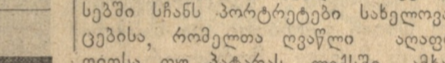 სებში სჩანს პორტრეტები სახელოვა
ცებისა, რომელთა ღვაწლი აღაფ